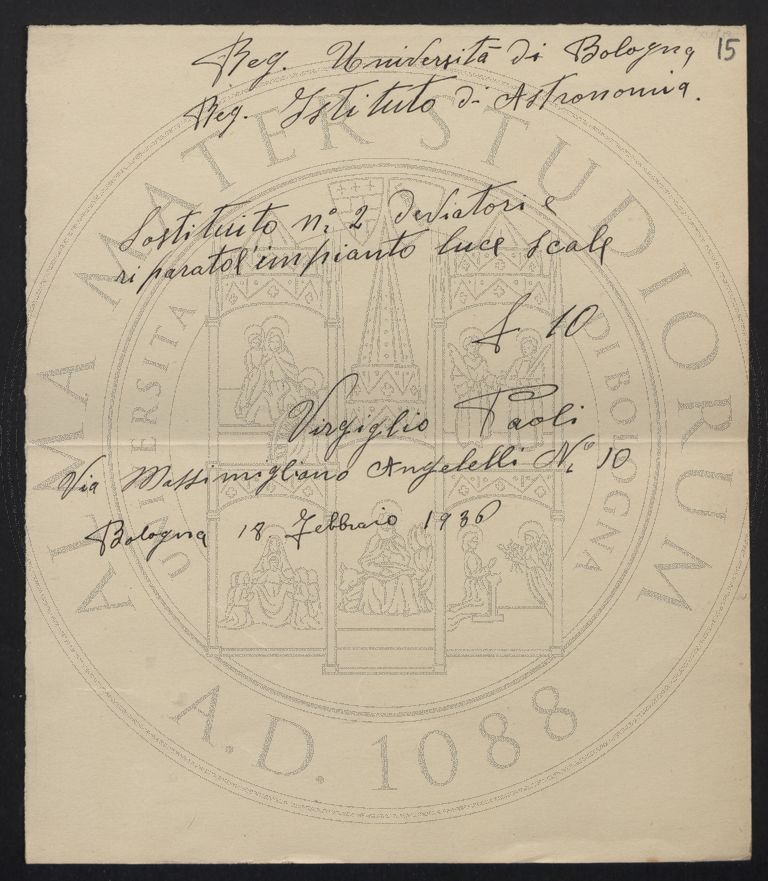 15
Reg. Università di Bologna
Reg. Istituto di Astronomia.
Sostituito n.° 2 deviatori e
riparato l'impianto luce scale
£ 10
Virgiglio Paoli
Via Massimigliano Angelelli N.° 10
Bologna 18 Febbraio 1936
ALMA MATER STUDIORUM
UNIVERSITA DI BOLOGNA
A.D. 1088